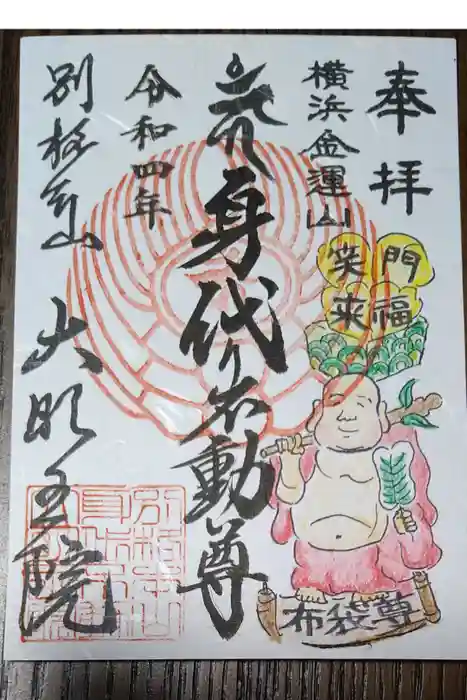 奉拝
横浜金運山
笑門来福
身代り不動尊
令和四年
別格本山
大明王院
布袋尊